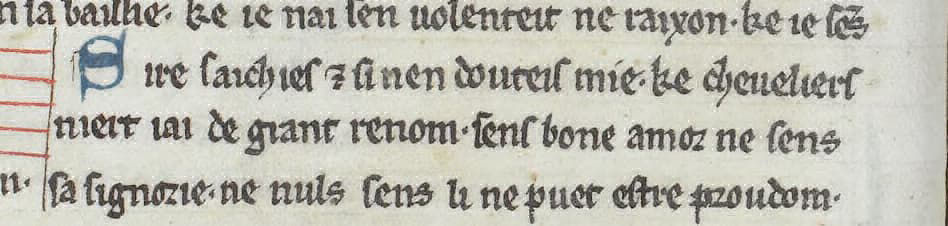 n sa baillie· ke ie nai sen uolenteit ne raixon· ke ie sēs
Sire saichies ⁊ si nen douteis mie· ke cheueliers
nieit iai de grant renom· sens bone amor ne sens
n· sa signorie· ne nuls sens li ne puet estre proudom·